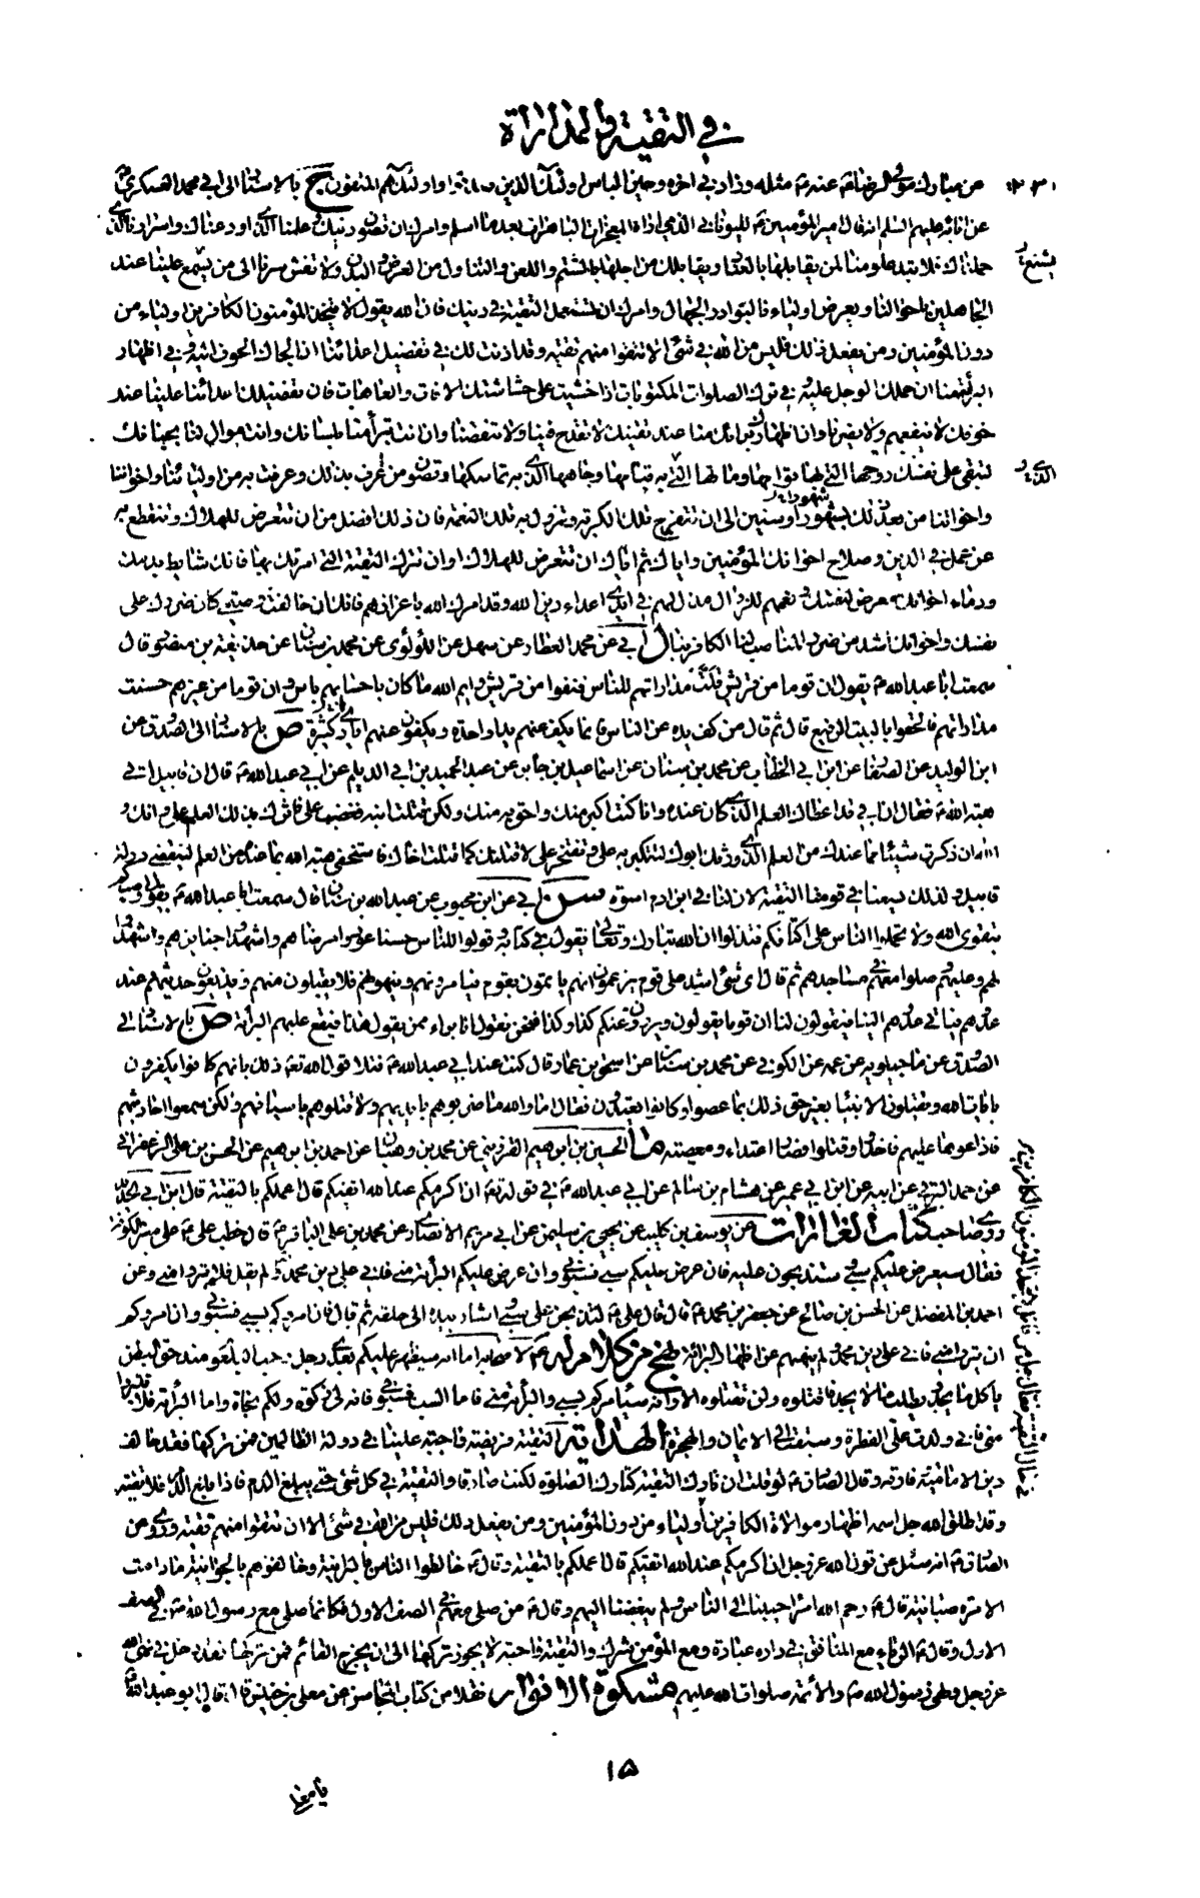 في التقية والمداراة
٢٣٠
عن مبارك مولى الرضا عنه ع مثله وزاد في اخره وحين الباس اولئك الذين صدقوا واولئك هم المتقون ج بالاسناد الى ابي محمد العسكري ع
عن ابائه عليهم السلم انه قال امير المؤمنين ع لليوناني الذي اراه المعجزات الباهرات بعد ما اسلم وامرك ان تصون دينك وعلمنا الذي اودعناك واسرارنا الذي
حملناك فلا تبد علومنا لمن يقابلها بالعناد ويقابلك من اجلها بالشتم واللعن والتناول من العرض والبدن ولا تفش سرنا الى من يشنع علينا عند
يشنع
الجاهلين باحوالنا ويعرض اولياءنا لبوادر الجهال وامرك ان تستعمل التقية في دينك فان الله يقول لا يتخذ المؤمنون الكافرين اولياء من
دون المؤمنين ومن يفعل ذلك فليس من الله في شئ الا ان تتقوا منهم تقية وقد اذنت لك في تفضيل اعدائنا ان الجاك الخوف اليه وفي اظهار
البرائة منا ان حملك الوجل عليه وفي ترك الصلوات المكتوبات اذا خشيت على حشاشتك الافات والعاهات فان تفضيلك اعدائنا علينا عند
خوفك لا ينفعهم ولا يضرنا وان اظهارك برائتك منا عند تقيتك لا تقدح فينا ولا تنقصنا وان انت تبرأ منا بلسانك وانت موال لنا بجنانك
لتبقي على نفسك روحها التي بها قوامها ومالها الذي به قيامها وجاهها الذي به تماسكها وتصون من عرف بذلك وعرفت به من اوليائنا واخواننا
الذي
واخواتنا من بعد ذلك بشهور او سنين الى ان تنفرج تلك الكربة وتزول به تلك الغمة فان ذلك افضل من ان تتعرض للهلاك وتنقطع به
عن عمل في الدين وصلاح اخوانك المؤمنين واياك ثم اياك ان تتعرض للهلاك او ان تترك التقية التي امرتك بها فانك شايط بدمك
ودماء اخوانك معرض لنفسك ونعمهم للزوال مذل لهم في ايدي اعداء دين الله وقد امرك الله باعزازهم فانك ان خالفت وصيتي كان ضررك على
نفسك واخوانك اشد من ضرر المناصب لنا الكافر بنا ل ابي عن محمد العطار عن سهل عن اللؤلؤي عن محمد بن سنان عن حذيفة بن منصور قال
سمعت ابا عبدالله ع يقول ان قوما من قريش قلت مداراتهم للناس فنفوا من قريش وايم الله ما كان باحسابهم باس وان قوما من غيرهم حسنت
مداراتهم فالحقوا بالبيت الرفيع قال ثم قال من كف يده عن الناس فانما يكف عنهم يدا واحدة ويكفون عنهم ايادي كثيرة ص بالاسناد الى الصدوق عن
ابن الوليد عن الصفار عن ابن ابي الخطاب عن محمد بن سنان عن اسماعيل بن جابر عن عبد الحميد بن ابي الديلم عن ابي عبدالله ع قال ان قابيل اتى
هبة الله ع فقال ان ابي قد اعطاك العلم الذي كان عنده وانا كنت اكبر منك واحق به منك ولكن قتلت ابنه فغضب علي فاثرك بذلك العلم علي وانك
والله ان ذكرت شيئا مما عندك من العلم الذي ورثك ابوك لتتكبر به علي وتفتخر علي لاقتلنك كما قتلت اخاك فاستخفى هبة الله بما عنده من العلم لينقضي دولة
قابيل ولذلك يسعنا في قومنا التقية لان لنا في ابن ادم اسوة سن ابي عن ابن محبوب عن عبدالله بن سنان قال سمعت ابا عبدالله ع يقول اوصيكم
بتقوى الله ولا تحملوا الناس على اكتافكم فتذلوا ان الله تبارك وتعالى يقول في كتابه وقولوا للناس حسنا عودوا مرضاهم واشهدوا جنائزهم واشهدوا
لهم وعليهم وصلوا معهم في مساجدهم ثم قال اي شئ اشد على قوم يزعمون انهم ياتمون بقوم فيامرونهم وينهونهم فلا يقبلون منهم ويذيعون حديثهم عند
عدوهم فياتي عدوهم الينا فيقولون لنا ان قوما يقولون ويروون عنكم كذا وكذا فنحن نقول انا براء ممن يقول هذا فيقع عليهم البرائة ص بالاسناد الى
الصدوق عن ماجيلويه عن عمه عن الكوفي عن محمد بن سنان عن اسحق بن عمار قال كنت عند ابي عبدالله ع فتلا قول الله تعالى ذلك بانهم كانوا يكفرون
بايات الله ويقتلون الانبياء بغير حق ذلك بما عصوا وكانوا يعتدون فقال اما والله ما ضربوهم بايديهم ولا قتلوهم باسيافهم ولكن سمعوا احاديثهم
فاذاعوها عليهم فاخذوا وقتلوا فصار اعتداء ومعصية ما الحسين بن ابراهيم القزويني عن محمد بن وهبان عن احمد بن ابراهيم عن الحسن بن علي الزعفراني
عن البرقي عن ابيه عن ابن ابي عمير عن هشام بن سالم عن ابي عبدالله ع في قوله تعالى ان اكرمكم عند الله اتقيكم قال اعملكم بالتقية قال ابن ابي الحديد
روى صاحب كتاب الغارات عن يوسف بن كليب عن يحيى بن سليمن عن ابي مريم الانصاري عن محمد بن علي الباقر ع قال خطب علي ع على منبر الكوفة
فقال سيعرض عليكم سبي وستذبحون عليه فان عرض عليكم سبي فسبوني وان عرض عليكم البرائة مني فاني على دين محمد ولم يقل فلا تبرؤا مني وعن
احمد بن المفضل عن الحسن بن صالح عن جعفر بن محمد ع قال قال علي ع لتذبحن على سبي واشار بيده الى حلقه ثم قال فان امروكم بسبي فسبوني وان امروكم
ان تبرؤا مني فاني على دين محمد ولم ينههم عن اظهار البرائة نهج من كلام له ع لاصحابه اما انه سيظهر عليكم بعدي رجل رحب البلعوم مندحق البطن
ياكل ما يجد ويطلب ما لا يجد فاقتلوه ولن تقتلوه الا وانه سيامركم بسبي والبرائة مني فاما السب فسبوني فانه لي زكوة ولكم نجاة واما البرائة فلا تتبرؤا
مني فاني ولدت على الفطرة وسبقت الى الايمان والهجرة الهداية التقية فريضة واجبة علينا في دولة الظالمين فمن تركها فقد خالف
دين الامامية وفارقه وقال الصادق ع لو قلت ان تارك التقية كتارك الصلوة لكنت صادقا والتقية في كل شئ حتى يبلغ الدم فاذا بلغ الدم فلا تقية
وقد اطلق الله جل اسمه اظهار موالاة الكافرين اولياء من دون المؤمنين ومن يفعل ذلك فليس من الله في شئ الا ان تتقوا منهم تقية وروى عن
الصادق ع انه سئل عن قول الله عز وجل ان اكرمكم عند الله اتقيكم قال اعملكم بالتقية وقال ع خالطوا الناس بالبرانية وخالفوهم بالجوانية مادامت
الامرة صبيانية وقال ع رحم الله امرا حببنا الى الناس ولم يبغضنا اليهم وقال ع من صلى معهم في الصف الاول فكانما صلى مع رسول الله ص في الصف
الاول وقال ع الرياء مع المنافق في داره عبادة ومع المؤمن شرك والتقية واجبة لا يجوز تركها الى ان يخرج القائم فمن تركها فقد دخل في نهي الله
عز وجل ونهي رسول الله ص والائمة صلوات الله عليهم مشكوة الانوار نقلا من كتاب المحاسن عن معلى بن خنيس قال قال ابو عبدالله ع
١٥
يا معلى